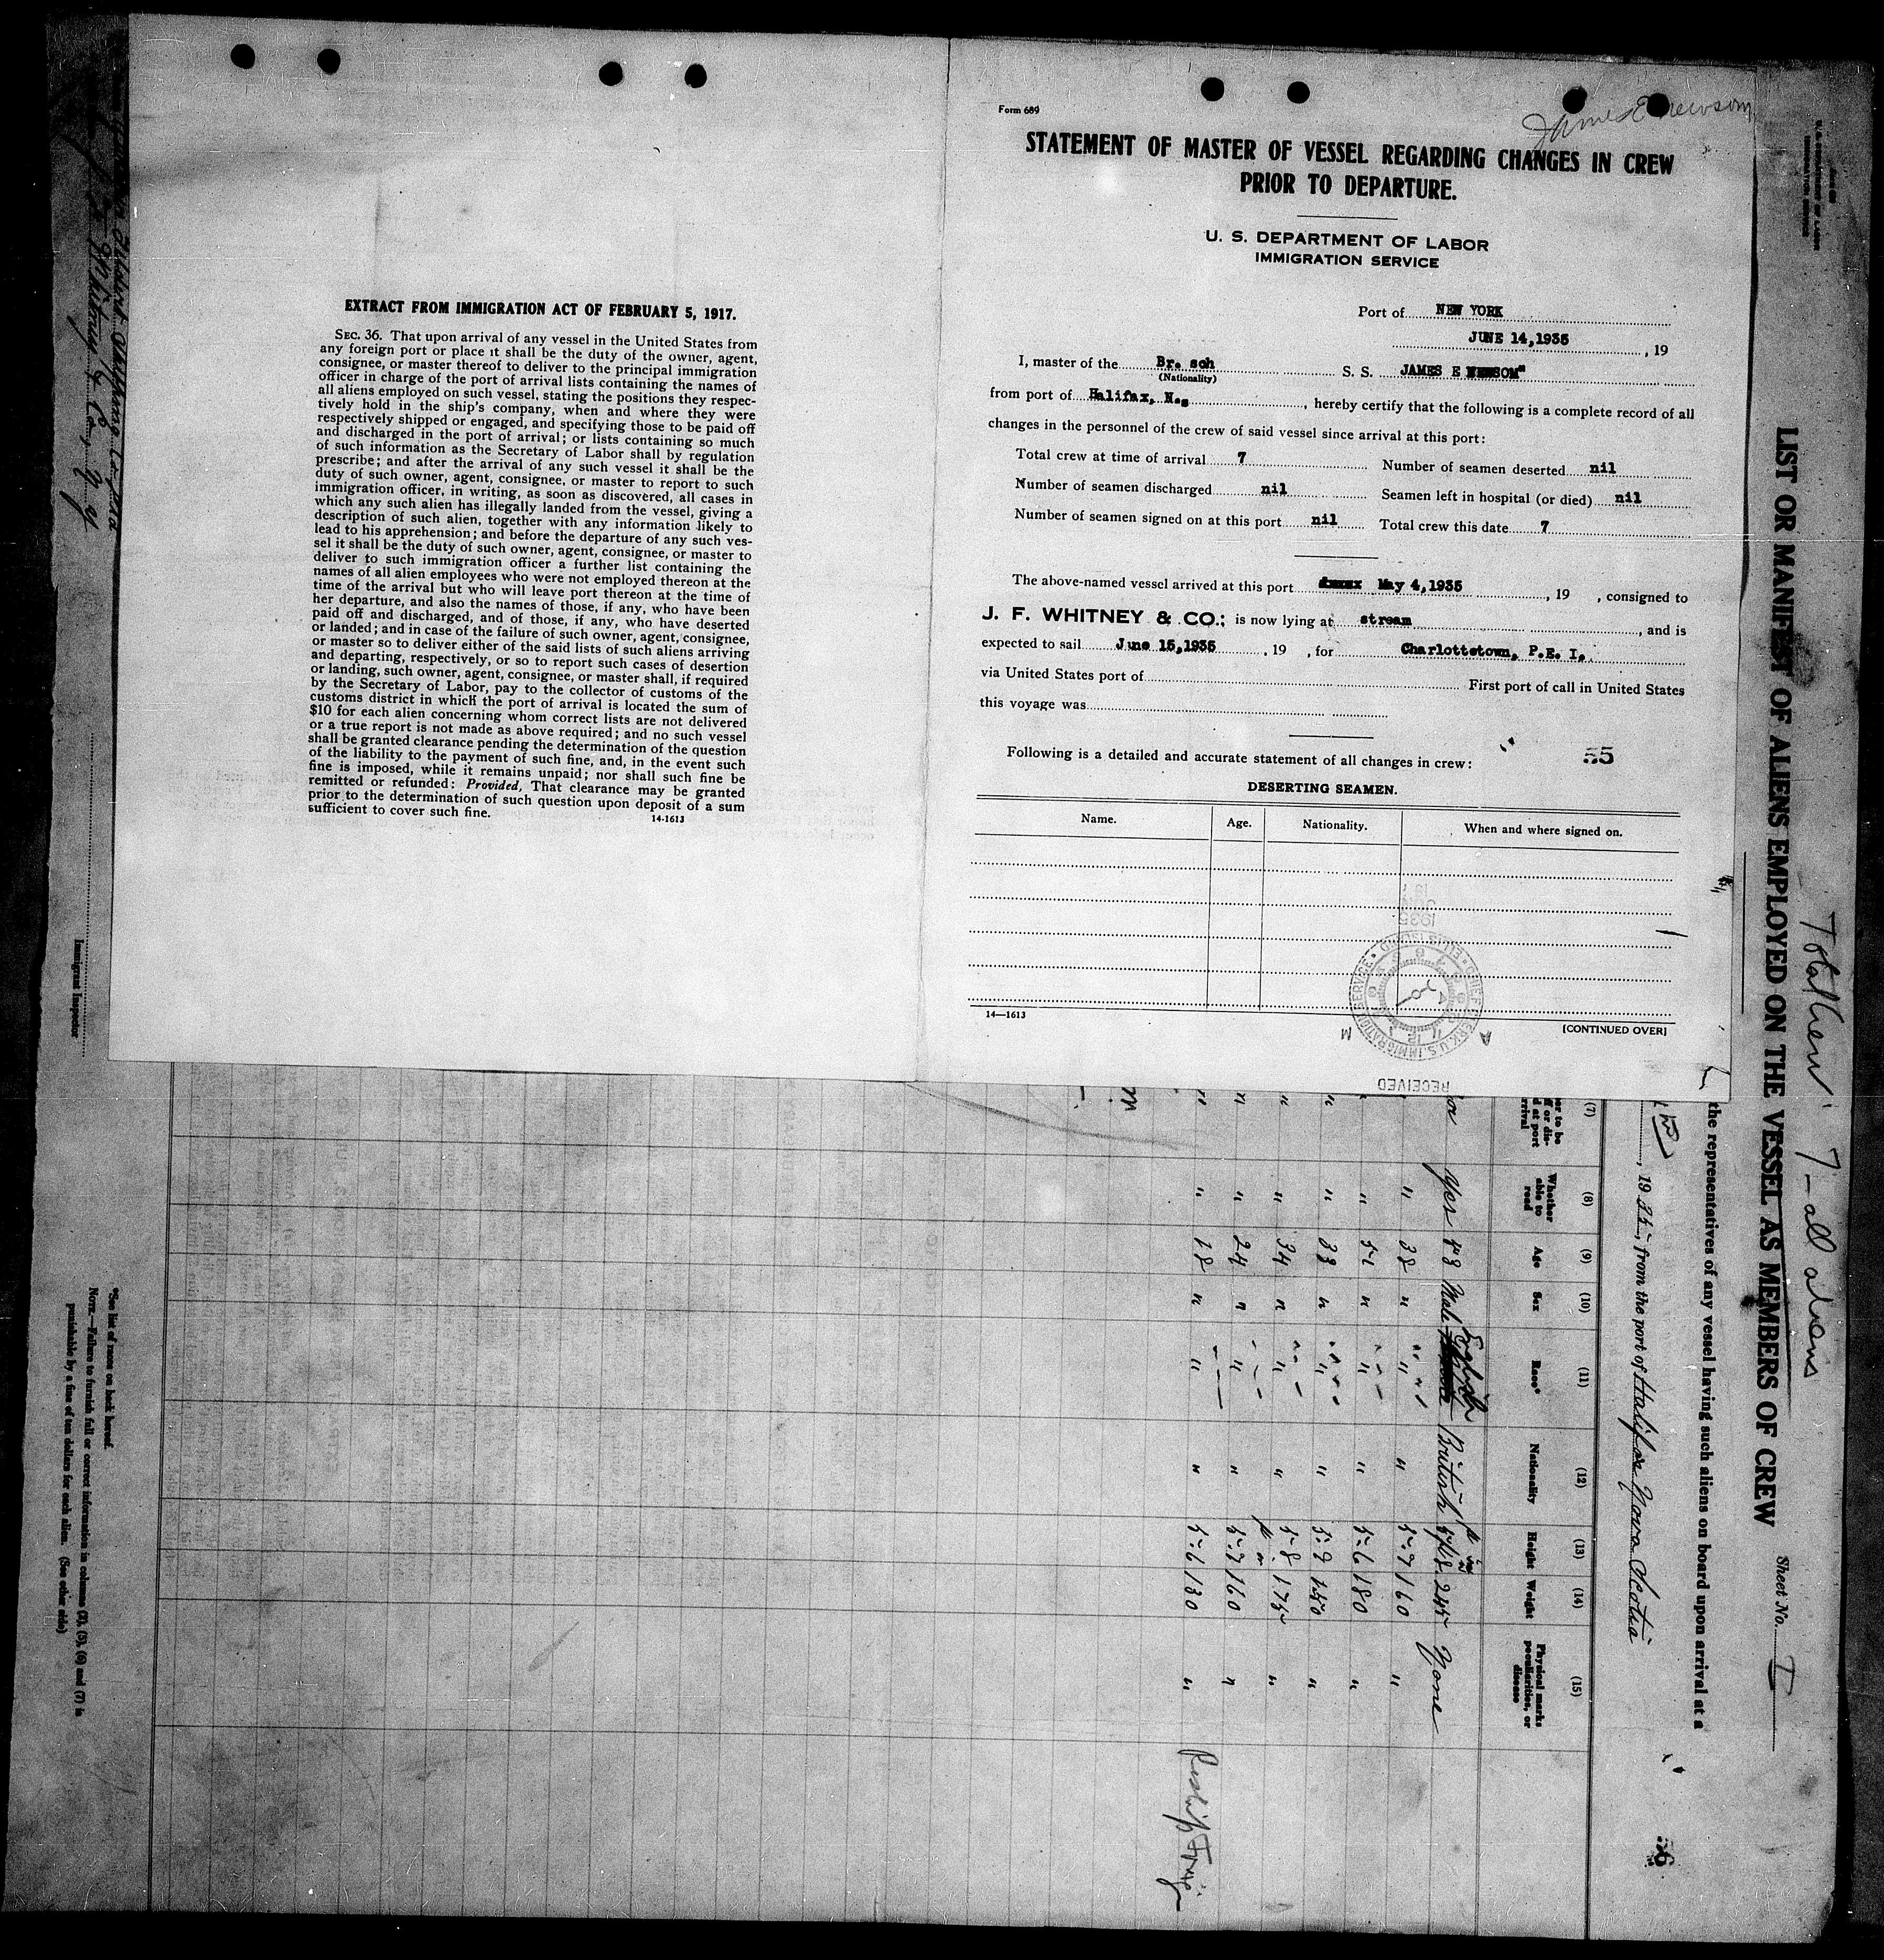 James E Newsom
Form 689
STATEMENT OF MASTER OF VESSEL REGARDING CHANGES IN CREW
PRIOR TO DEPARTURE.
U. S. DEPARTMENT OF LABOR
IMMIGRATION SERVICE
Port of NEW YORK
JUNE 14,1935, 19
I, master of the Br. sch S. S. JAMES E NEWSOM"
(Nationality)
from port of Halifax, N.S, hereby certify that the following is a complete record of all
changes in the personnel of the crew of said vessel since arrival at this port:
Total crew at time of arrival 7 Number of seamen deserted nil
Number of seamen discharged nil Seamen left in hospital (or died) nil
Number of seamen signed on at this port nil Total crew this date 7
The above-named vessel arrived at this port May 4,1935, 19 , consigned to
J. F. WHITNEY & CO.; is now lying at stream, and is
expected to sail June 15,1935, 19 , for Charlottetown, P.E.I.
via United States port of First port of call in United States
this voyage was
Following is a detailed and accurate statement of all changes in crew:
55
DESERTING SEAMEN.
Name. Age. Nationality. When and where signed on.
14—1613
[CONTINUED OVER]
RECEIVED
EXTRACT FROM IMMIGRATION ACT OF FEBRUARY 5, 1917.
SEC. 36. That upon arrival of any vessel in the United States from
any foreign port or place it shall be the duty of the owner, agent,
consignee, or master thereof to deliver to the principal immigration
officer in charge of the port of arrival lists containing the names of
all aliens employed on such vessel, stating the positions they respec-
tively hold in the ship's company, when and where they were
respectively shipped or engaged, and specifying those to be paid off
and discharged in the port of arrival; or lists containing so much
of such information as the Secretary of Labor shall by regulation
prescribe; and after the arrival of any such vessel it shall be the
duty of such owner, agent, consignee, or master to report to such
immigration officer, in writing, as soon as discovered, all cases in
which any such alien has illegally landed from the vessel, giving a
description of such alien, together with any information likely to
lead to his apprehension; and before the departure of any such ves-
sel it shall be the duty of such owner, agent, consignee, or master to
deliver to such immigration officer a further list containing the
names of all alien employees who were not employed thereon at the
time of the arrival but who will leave port thereon at the time of
her departure, and also the names of those, if any, who have been
paid off and discharged, and of those, if any, who have deserted
or landed; and in case of the failure of such owner, agent, consignee,
or master so to deliver either of the said lists of such aliens arriving
and departing, respectively, or so to report such cases of desertion
or landing, such owner, agent, consignee, or master shall, if required
by the Secretary of Labor, pay to the collector of customs of the
customs district in which the port of arrival is located the sum of
$10 for each alien concerning whom correct lists are not delivered
or a true report is not made as above required; and no such vessel
shall be granted clearance pending the determination of the question
of the liability to the payment of such fine, and, in the event such
fine is imposed, while it remains unpaid; nor shall such fine be
remitted or refunded: Provided, That clearance may be granted
prior to the determination of such question upon deposit of a sum
sufficient to cover such fine.
14-1613
Total Crew 7 - all aliens
LIST OR MANIFEST OF ALIENS EMPLOYED ON THE VESSEL AS MEMBERS OF CREW
Sheet No. I
the representatives of any vessel having such aliens on board upon arrival at a
, 1935, from the port of Halifax Nova Scotia
56
(7) (8) (9) (10) (11) (12) (13) (14) (15)
Whether able to read Age Sex Race* Nationality Height Weight Physical marks, peculiarities, or disease
Yes 53 Male English British 5ft 8in 245 None
" 38 " " " 5-7 160 "
" 51 " " " 5-6 180 "
" 33 " " " 5-9 150 "
" 34 " " " 5-8 175 "
" 24 " " " 5-7 160 "
" 18 " " " 5-6 130 "
Immigrant Inspector
*See list of races on back hereof.
NOTE.—Failure to furnish full or correct information in columns (2), (5), (6) and (7) is
punishable by a fine of ten dollars for each alien. (See other side)